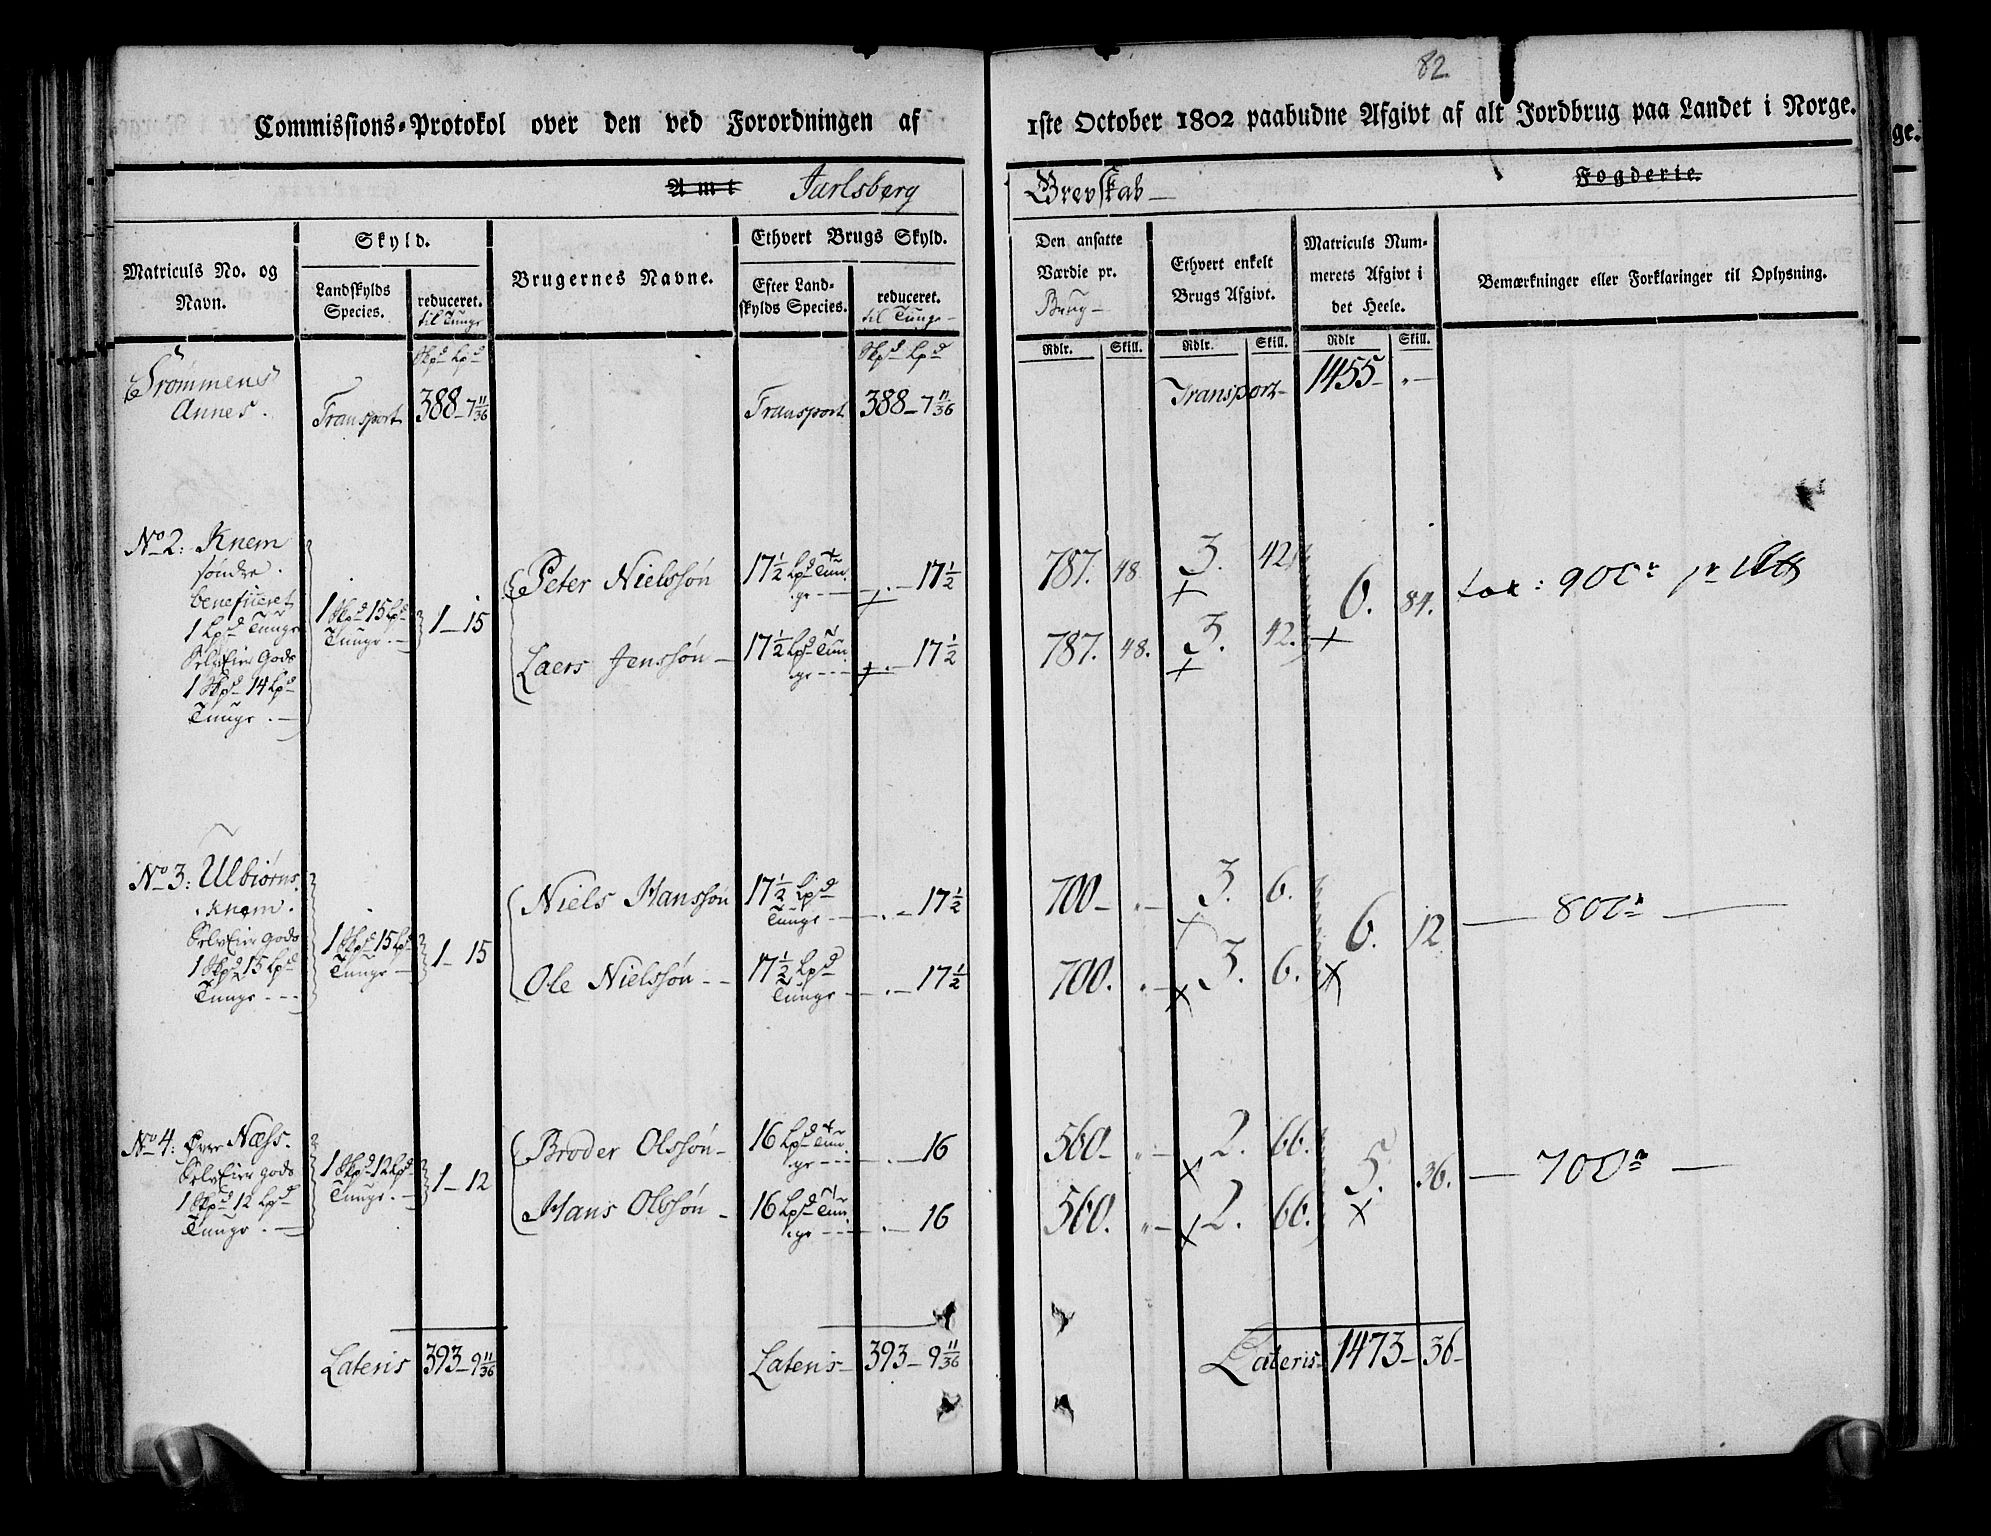 82.
Commissions-Protokol over den ved Forordningen af 1ste October 1802 paabudne Afgivt af alt Jordbrug paa Landet i Norge.
Amt Jarlsberg Grevskab Fogderie.
Matriculs No. og Navn.
Skyld.
Landskylds Species.
reduceret. til Tunge
Brugernes Navne.
Ethvert Brugs Skyld.
Efter Landskylds Species.
reduceret. til Tunge
Den ansatte Værdie pr. Brug
Ethvert enkelt Brugs Afgivt.
Matriculs Nummerets Afgivt i det Heele.
Bemærkninger eller Forklaringer til Oplysning.
Skpd Lpd
Skpd Lpd
Rdlr. Skill. Rdlr. Skill. Rdlr Skill.
Strømmens
Annex.
Transport 388 - 7 11/36 Transport 388 - 7 11/36 Transport 1455 - "
No 2: Knem
søndre.
beneficeret
1 Lpd Tunge
SelvEier Gods
1 Skpd 14 Lpd
Tunge.
1 Skpd 15 Lpd
Tunge.
1 - 15
Peter Nielssøn 17½ Lpd Tunge - 17½ 787. 48 3. 42
Laers Jenssøn 17½ Lpd Tunge - 17½ 787. 48. 3. 42.
6. 84.
tax: 900
No 3: Ulbiørns
Knem.
SelvEier Gods
1 Skpd 15 Lpd
Tunge
1 Skpd 15 Lpd
Tunge
1 - 15
Niels Hanssøn 17½ Lpd Tunge - 17½ 700 - " 3. 6.
Ole Nielssøn 17½ Lpd Tunge - 17½ 700. " 3. 6.
6. 12
800
No 4: Øvre Næss.
SelvEier Gods
1 Skpd 12 Lpd
Tunge.
1 Skpd 12 Lpd
Tunge.
1 - 12
Broder Olssøn 16 Lpd Tunge - 16 560 - " 2. 66.
Hans Olssøn 16 Lpd Tunge - 16 560. " 2. 66.
5. 36.
700
Lateris 393 - 9 11/36 Lateris 393 - 9 11/36 Lateris 1473 - 36
ge.